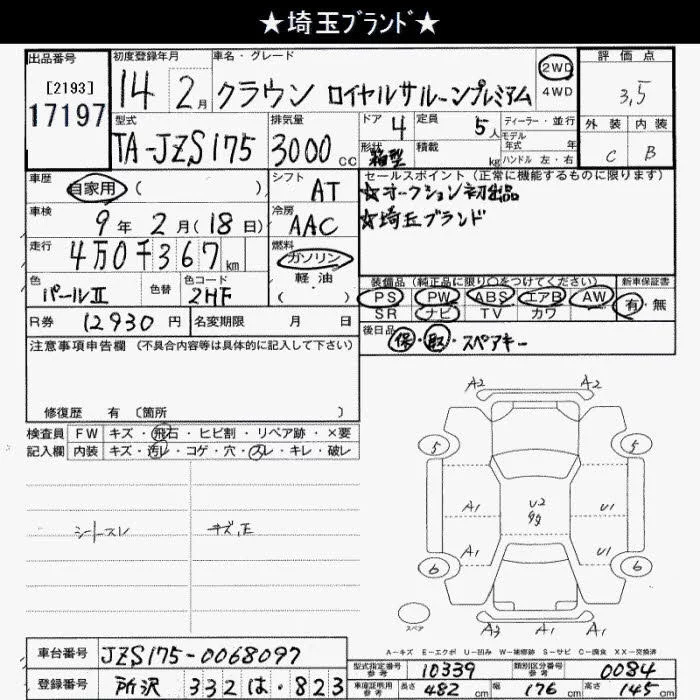 ★埼玉ブランド★
出品番号 初度登録年月 車名・グレード 2WD 評価点
[2193] 14 2月 クラウン ロイヤルサルーンプレミアム 4WD 3,5
17197 型式 排気量 ドア 定員 ディーラー・並行 外装 内装
TA-JZS175 3000cc 4 5人 モデル年式 年 C B
形状 箱型 積載 kg ハンドル 左・右
車歴 自家用 ( ) シフト AT セールスポイント(正常に機能するものに限ります)
☆オークション初出品
車検 9年 2月(18日) 冷房 AAC ☆埼玉ブランド
走行 4万0千367km 燃料 ガソリン
軽・油
( )
色 パールII 色替 色コード 2HF 装備品(純正品に限り○をつけてください) 新車保証書
PS PW ABS エアB AW 有・無
R券 12930円 名変期限 月 日 SR ナビ TV カワ
後日品 保・取・スペアキー
注意事項申告欄 (不具合内容等は具体的に記入して下さい)
修復歴 有 〔箇所 〕
検査員 FW キズ・飛石・ヒビ割・リペア跡・×要
記入欄 内装 キズ・汚レ・コゲ・穴・スレ・キレ・破レ
シートスレ
A2 A2
5 5
A1 U2 U1
A1 U1
6 6
スペア
A1 A1
A-キズ E-エクボ U-凹み W-補修跡 S-サビ C-腐食 XX-交換済
車台番号 JZS175-0068097
型式指定番号 参考 10339 類別区分番号 参考 0084
登録番号 所沢 332 は・823
車庫証明用 参考 長さ 482cm 幅 176cm 高さ 145cm